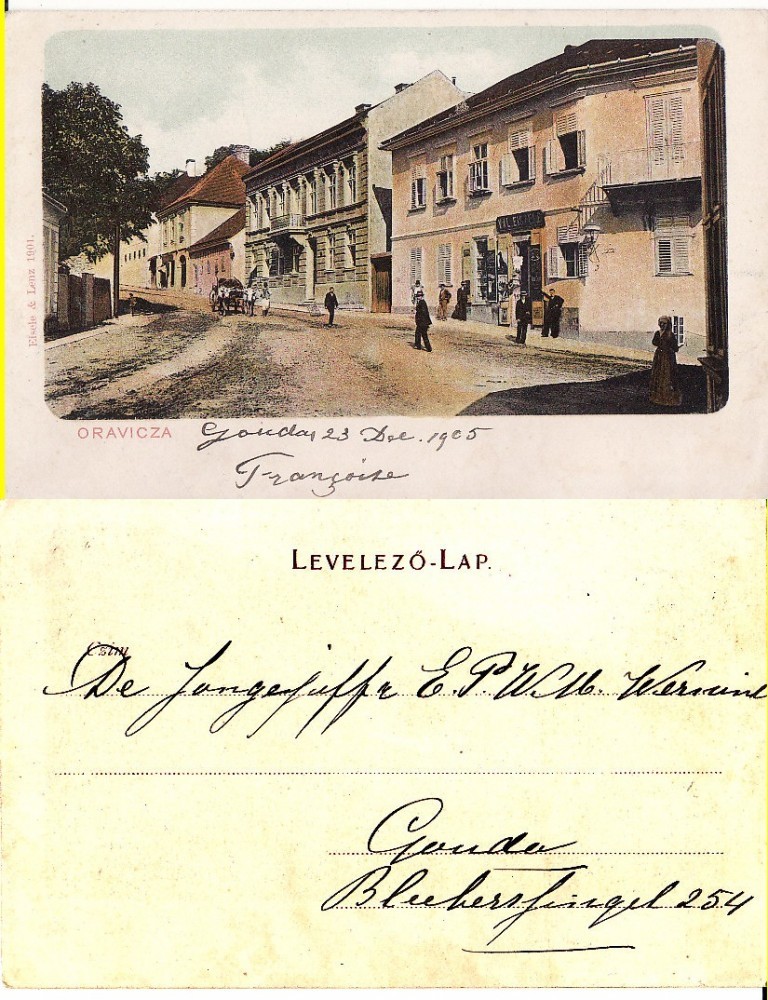 Eisele & Lenz 1901.
ORAVICZA Gouda, 23 Dec. 1905
Françoise
LEVELEZŐ-LAP.
Czim
De Jongejuffr E.P.W.M.
Gouda
Bleekerssingel 254